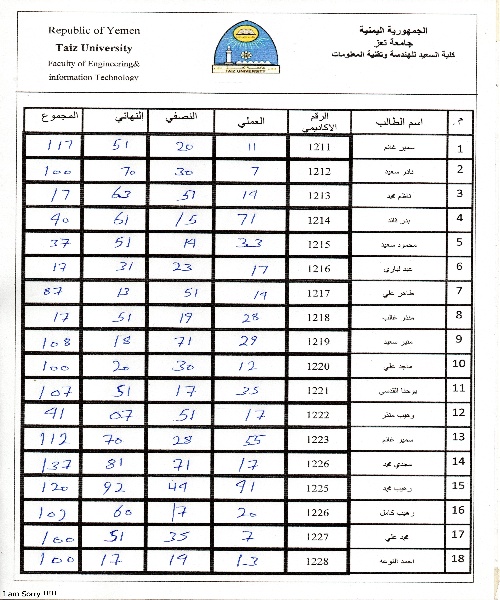 Republic of Yemen
Taiz University
Faculty of Engineering&
information Technology
الجمهورية اليمنية
جامعة تعز
كلية السعيد للهندسة وتقنية المعلومات
TAIZ UNIVERSITY
م. اسم الطالب الرقم الاكاديمي العملي النصفي النهائي المجموع
1 سمير غانم 1211 11 20 51 117
2 نادر سعيد 1212 7 30 70 100
3 محمد 1213 19 51 63 17
4 بدر قائد 1214 71 15 61 40
5 محمود سعيد 1215 33 19 51 37
6 عبد الباري 1216 17 23 31 17
7 طاهر علي 1217 19 51 13 87
8 منذر غالب 1218 28 19 51 17
9 منير سعيد 1219 29 71 18 108
10 ماجد علي 1220 12 30 20 100
11 القدسي 1221 35 17 51 107
12 وهيب منذر 1222 17 51 07 41
13 سمير غانم 1223 55 28 70 112
14 سعدي محمد 1226 17 71 81 137
15 وهيب محمد 1225 91 49 92 120
16 وهيب كامل 1226 20 17 60 107
17 محمد علي 1227 7 35 51 100
18 احمد 1228 13 19 17 100
I am Sorry !!!!